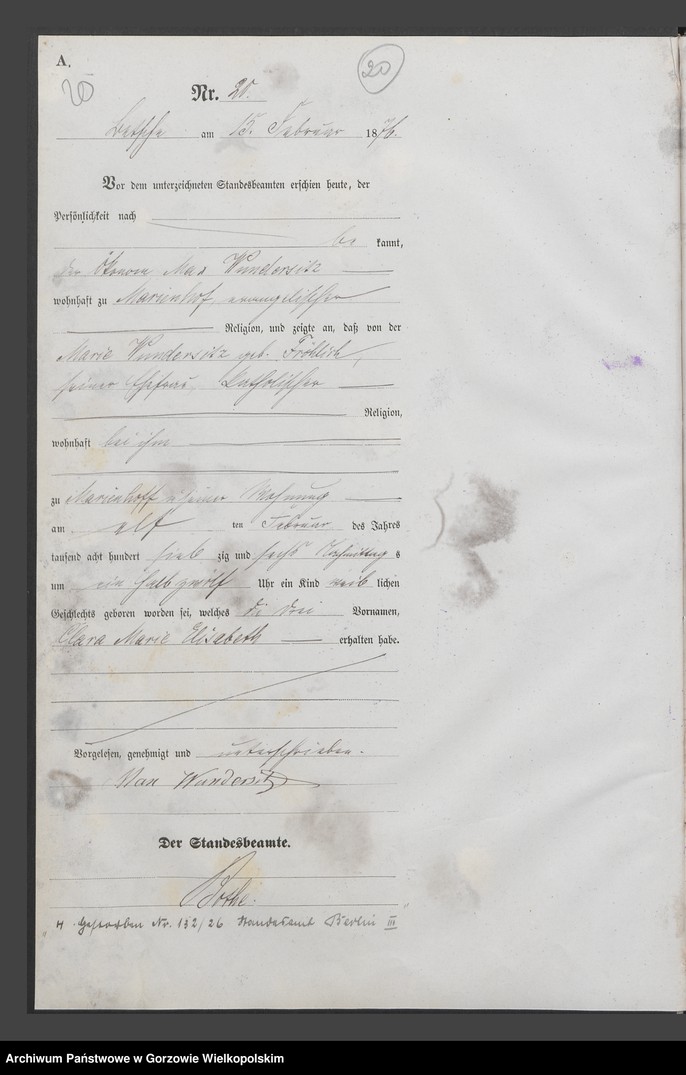 A.
20
20
Nr. 20.
Betsche am 15. Februar 1876.
Vor dem unterzeichneten Standesbeamten erschien heute, der
Persönlichkeit nach
be kannt,
der Ökonom Max Wundersitz
wohnhaft zu Marienhof, evangelischer
Religion, und zeigte an, daß von der
Marie Wundersitz geb. Fröhlich,
seiner Ehefrau, katholischer
Religion,
wohnhaft bei ihm
zu Marienhoff in seiner Wohnung
am elf ten Februar des Jahres
tausend acht hundert sieb zig und sechs Vormittag s
um ein halb zwölf Uhr ein Kind weib lichen
Geschlechts geboren worden sei, welches die drei Vornamen,
Clara Marie Elisabeth erhalten habe.
Vorgelesen, genehmigt und unterschrieben.
Max Wundersitz
Der Standesbeamte.
Bothe.
Gestorben Nr. 132/26 Standesamt Berlin III
Archiwum Państwowe w Gorzowie Wielkopolskim